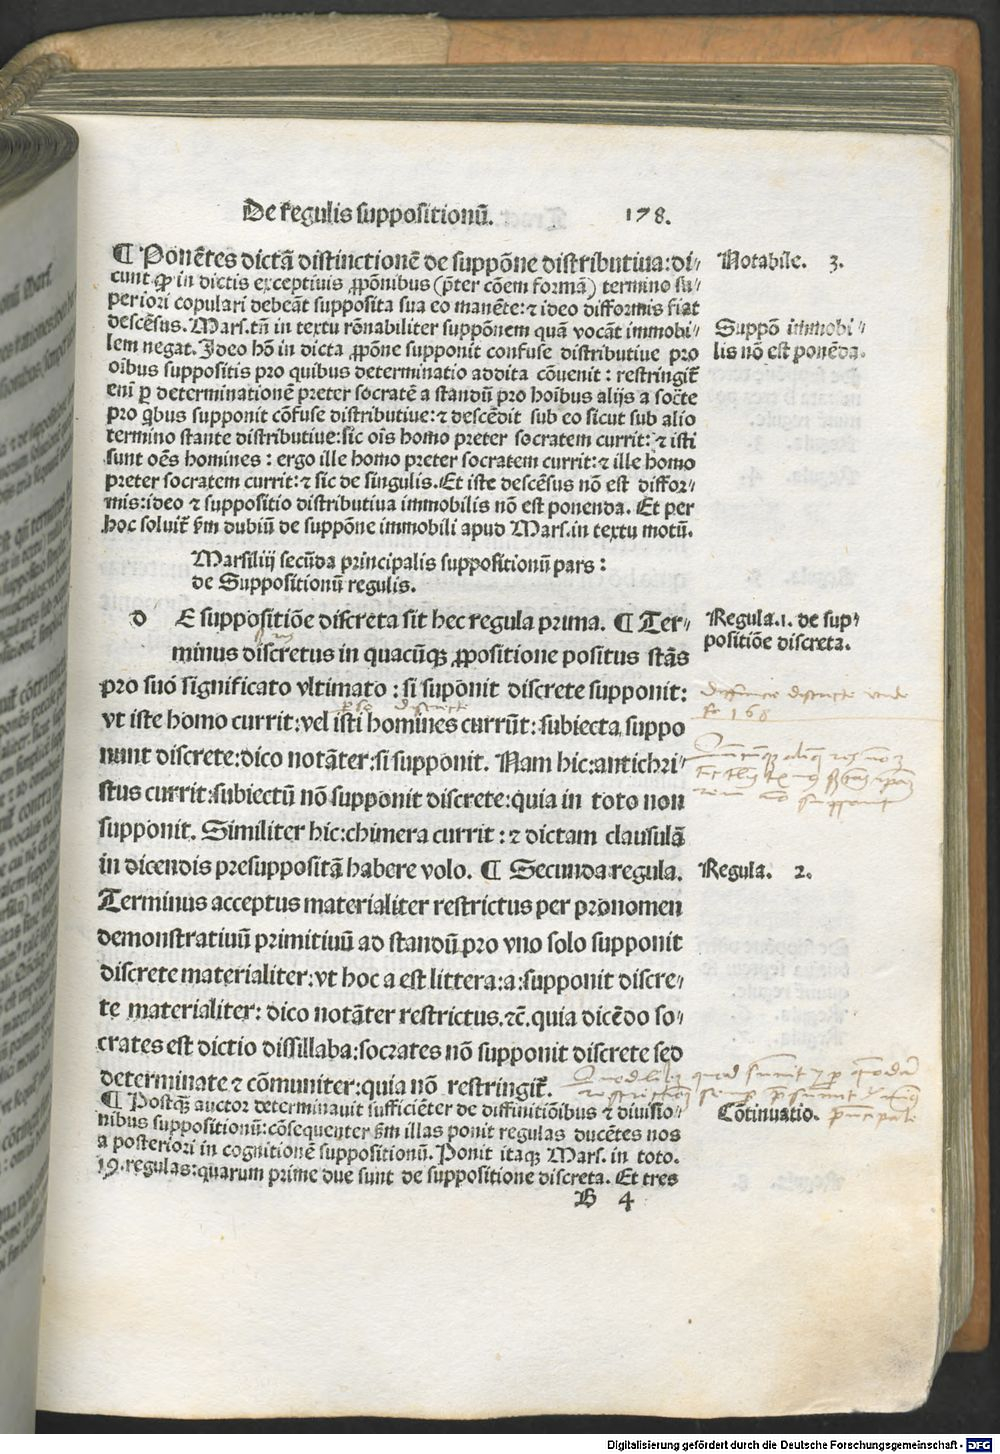 De regulis suppositionũ. 178.
¶ Ponẽtes dictã distinctionẽ de suppõne distributiua: di⸗
cunt ꝙ in dictis exceptiuis ꝓpõnibus (p̃ter cõem formã) termino su⸗
periori copulari debeãt supposita sua eo manẽte: ⁊ ideo difformis fiat
descẽsus. Mars. tñ in textu rõnabiliter suppõnem quã vocãt immobi⸗
lem negat. Ideo hõ in dicta ꝓpõne supponit confuse distributiue pro
oĩbus suppositis pro quibus determinatio addita cõuenit: restringit᷑
eni᷑ ꝑ determinationẽ preter socratẽ a standũ pro hoĩbus alijs a socr̃te
pro qbus supponit cõfuse distributiue: ⁊ descẽdit sub eo sicut sub alio
termino stante distributiue: sic oĩs homo preter socratem currit: ⁊ isti
sunt oẽs homines: ergo ille homo preter socratem currit: ⁊ ille homo
preter socratem currit: ⁊ sic de singulis. Et iste descẽsus nõ est diffor⸗
mis: ideo ⁊ suppositio distributiua immobilis nõ est ponenda. Et per
hoc soluit᷑ ẞm dubiũ de suppõne immobili apud Mars. in textu motũ.
Notabile. 3.
Suppõ immobi⸗
lis nõ est ponẽda.
Marsilij secũda principalis suppositionũ pars:
de Suppositionũ regulis.
d E suppositiõe discreta sit hec regula prima. ¶ Ter⸗
minus discretus in quacũqꝫ ꝓpositione positus stãs
pro suo significato vltimato: si supõnit discrete supponit:
vt iste homo currit: vel isti homines currũt: subiecta suppo
nunt discrete: dico notãter: si supponit. Nam hic: antichri⸗
stus currit: subiectũ nõ supponit discrete: quia in toto non
supponit. Similiter hic: chimera currit: ⁊ dictam clausulã
in dicendis presuppositã habere volo. ¶ Secunda regula.
Terminus acceptus materialiter restrictus per pronomen
demonstratiuũ primitiuũ ad standũ pro vno solo supponit
discrete materialiter: vt hoc a est littera: a: supponit discre⸗
te materialiter: dico notãter restrictus. ⁊c̃. quia dicẽdo so⸗
crates est dictio dissillaba: socrates nõ supponit discrete sed
determinate ⁊ cõmuniter: quia nõ restringit᷑.
Regula. 1. de sup⸗
positiõe discreta.
fo 168
Regula. 2.
¶ Postqꝫ auctor determinauit sufficiẽter de diffinitiõibus ⁊ diuisio⸗
nibus suppositionũ: cõsequenter ẞm illas ponit regulas ducẽtes nos
a posteriori in cognitionẽ suppositionũ. Ponit itaqꝫ Mars. in toto.
19. regulas: quarum prime due sunt de suppositione discreta. Et tres
Cõtinuatio.
B 4
Digitalisierung gefördert durch die Deutsche Forschungsgemeinschaft - DFG